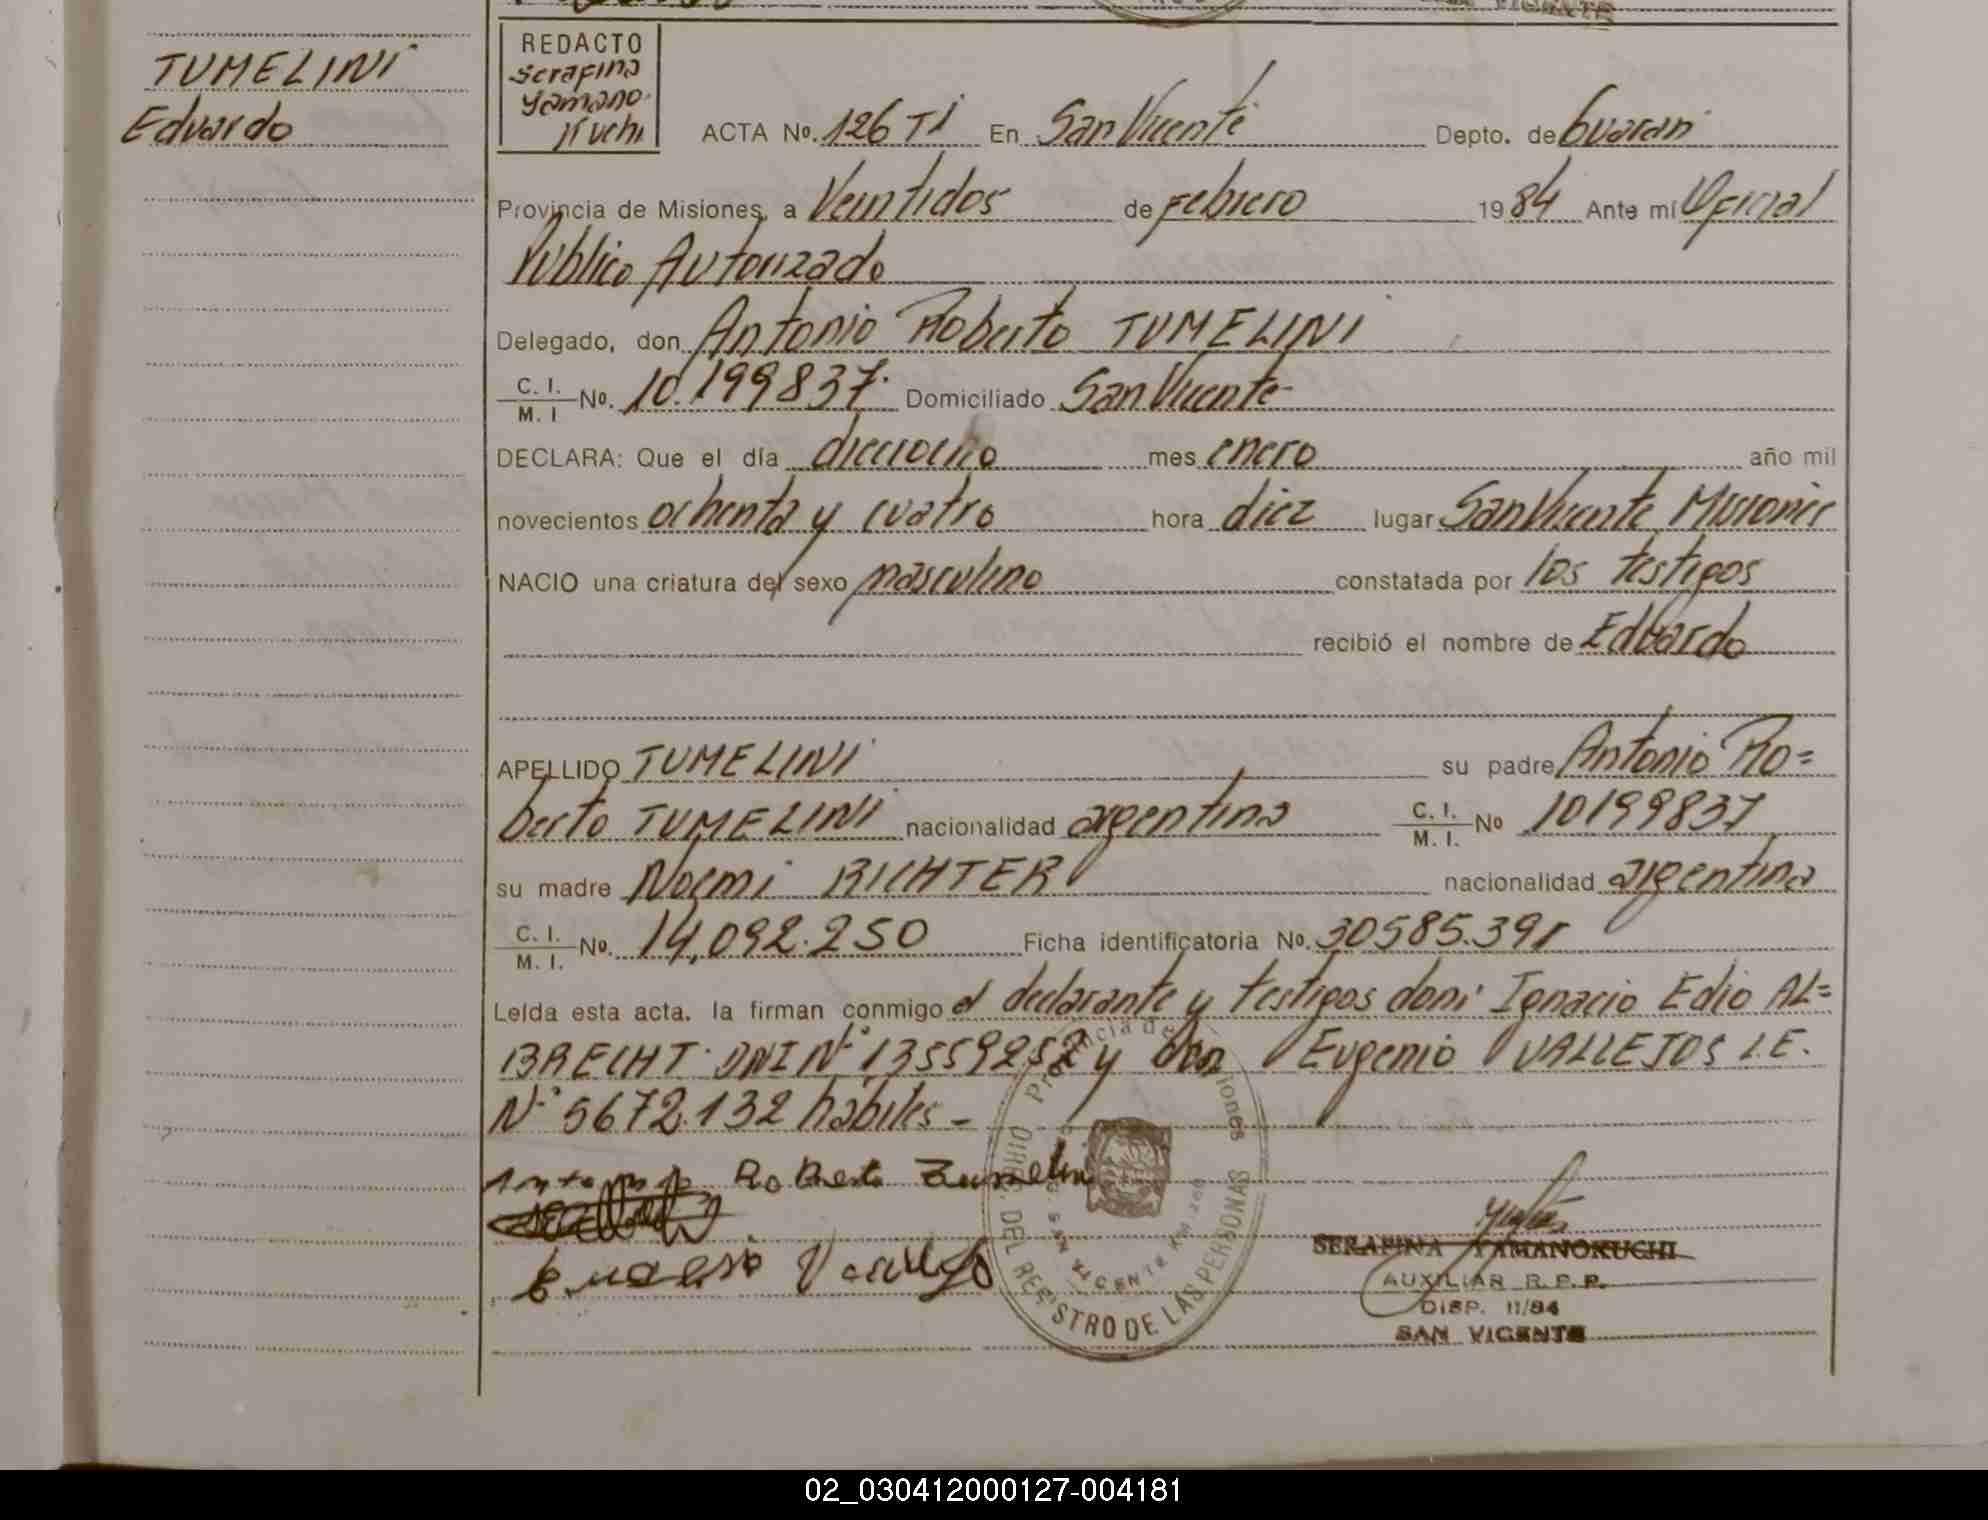 TUMELINI
Eduardo
REDACTO
Serafina
Yamano
Kuchi
ACTA No. 126 TI En San Vicente Depto. de Guarani
Provincia de Misiones, a Veintidos de Febrero 1984 Ante mí Oficial
Público Autorizado
Delegado, don Antonio Roberto TUMELINI
C. I. / M. I No. 10.199837. Domiciliado San Vicente
DECLARA: Que el día dieciocho mes enero año mil
novecientos ochenta y cuatro hora diez lugar San Vicente Misiones
NACIO una criatura del sexo masculino constatada por los testigos
recibió el nombre de Eduardo
APELLIDO TUMELINI su padre Antonio Ro=
berto TUMELINI nacionalidad argentina C. I. / M. I. No 10199837
su madre Noemi RICHTER nacionalidad argentina
C. I. / M. I. No. 14,092.250 Ficha identificatoria No. 30585.391
Leída esta acta. la firman conmigo el declarante y testigos don: Ignacio Edio AL=
BRECHT DNI Nº 13559252 y don Eugenio VALLEJOS L.E.
Nº 5672.132 habiles -
Antonio Roberto Tumelini
Eugenio Vallejo
Provincia de Misiones
DIREC. DEL REGISTRO DE LAS PERSONAS
SAN VICENTE
SERAFINA YAMANOKUCHI
AUXILIAR R. P. P.
DISP. 11/84
SAN VICENTE
02_030412000127-004181